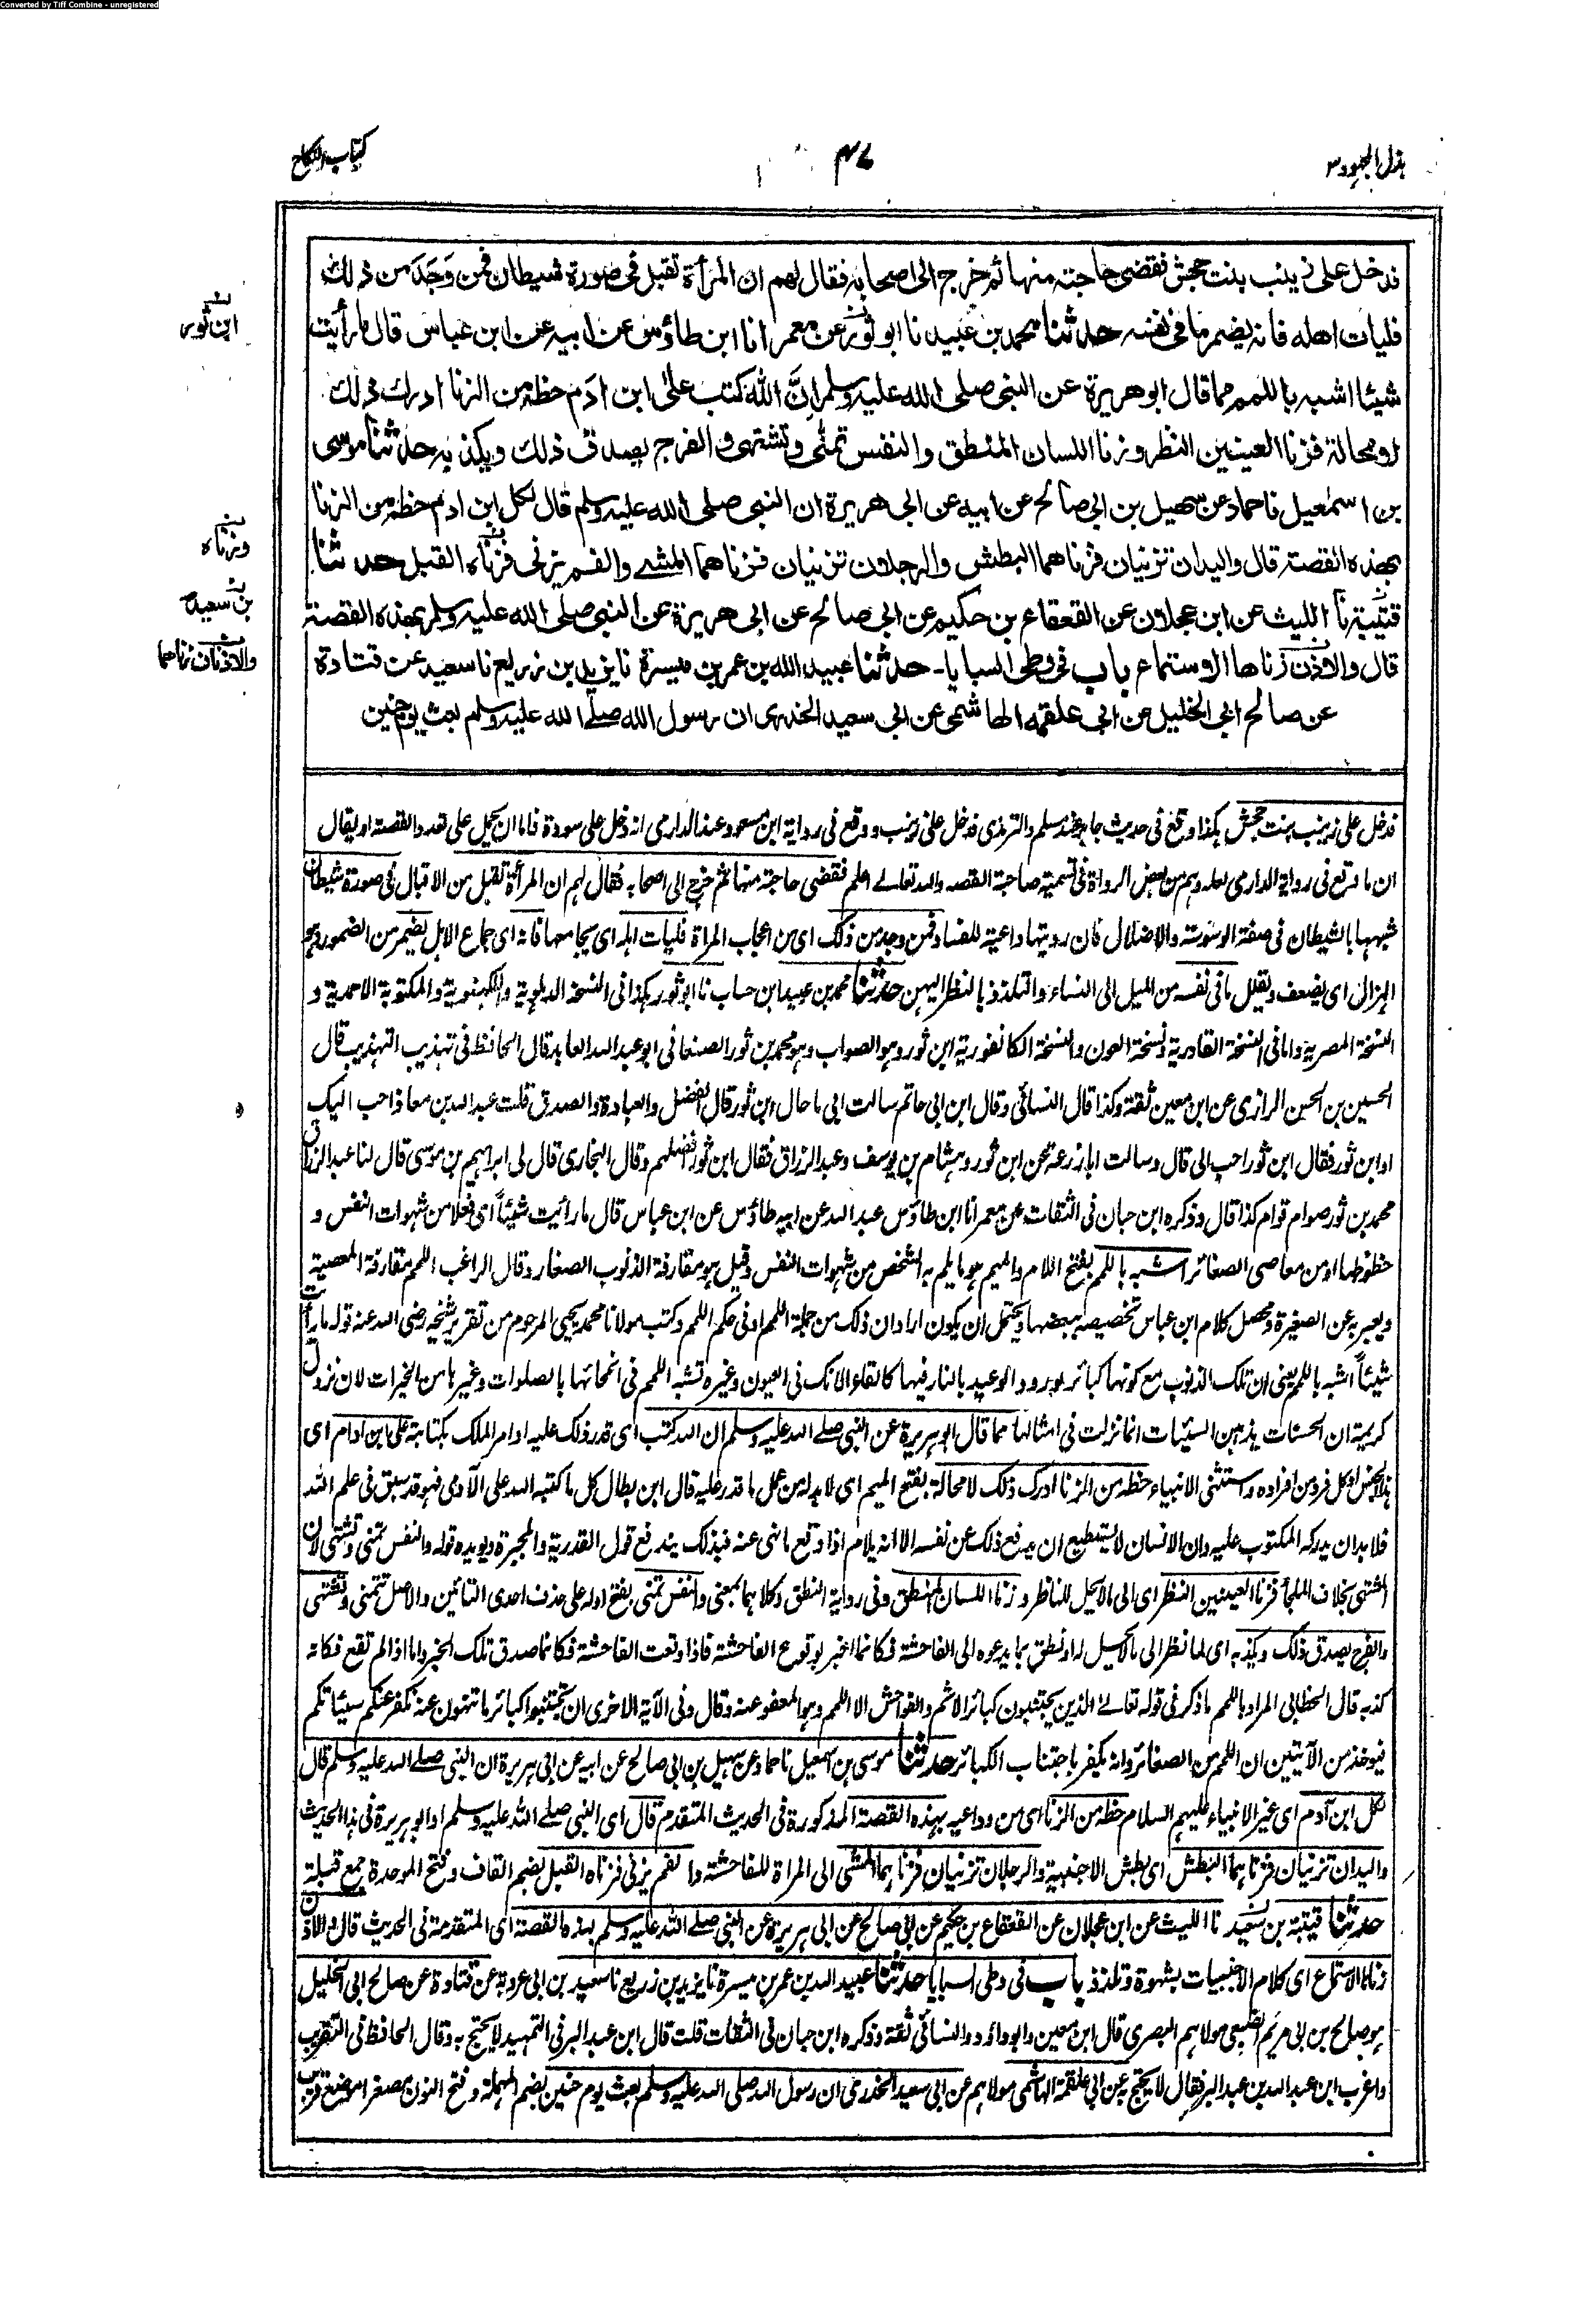 Converted by Tiff Combine - unregistered
بذل المجهود ٣
٤٧
كتاب النكاح
فدخل على زينب بنت جحش فقضى حاجته منها ثم خرج الى اصحابه فقال لهم ان المرأة تقبل في صورة شيطان فمن وَجَدَ من ذلك
فليأت اهله فانه يضمر ما في نفسه حدثنا محمد بن عبيد نا ابو ثور عن معمر انا ابن طاؤس عن ابيه عن ابن عباس قال ما رأيت
شيئا اشبه باللمم مما قال ابو هريرة عن النبي صلى الله عليه وسلم اِنَّ الله كتب على ابن ادم حظه من الزنا ادرك ذلك
لا محالة فزنا العينين النظر وزنا اللسان المنطق والنفس تمنّى وتشتهي والفرج يصدق ذلك ويكذبه حدثنا موسى
بن اسمعيل نا حماد عن سهيل بن ابي صالح عن ابيه عن ابي هريرة ان النبي صلى الله عليه وسلم قال لكل ابن ادم حظه من الزنا
بهذه القصة قال واليدان تزنيان فزناهما البطش والرجلان تزنيان فزناهما المشي والفم يزني فزناه القبل حدثنا
قتيبة نا الليث عن ابن عجلان عن القعقاع بن حكيم عن ابي صالح عن ابي هريرة عن النبي صلى الله عليه وسلم بهذه القصة
قال والاذن زناها الاستماع باب في وطي السبايا۔ حدثنا عبيد الله بن عمر بن ميسرة نا يزيد بن زريع نا سعيد عن قتادة
عن صالح ابي الخليل عن ابي علقمة الهاشمي عن ابي سعيد الخدري ان رسول الله صلى الله عليه وسلم بعث يوم حنين
ابن ثور
وزناه
بن سعيد
والاذنان زناهما
فدخل على زينب بنت جحش هكذا وقع في حديث جابر عند مسلم والترمذي فدخل على زينب ووقع في رواية ابن مسعود عند الدارمي انه دخل على سودة فاما ان يحمل على تعدد القصة او يقال
ان ما وقع في رواية الدارمي لعله وهم من بعض الرواة في تسمية صاحبة القصه والله تعالى اعلم فقضى حاجته منها ثم خرج الى اصحابه فقال لهم ان المرأة تقبل من الاقبال في صورة شيطان
شبهها بالشيطان في صفة الوسوسة والاضلال فان رويتها داعية للفساد فمن وجد من ذلك اى من اعجاب المراة فليات اهله اى يجامعها فانه اى جماع الاهل يضمر من الضمور وهو
الهزال اى يضعف ويقلل ما في نفسه من الميل الى النساء والتلذذ بالنظر اليهن حدثنا محمد بن عبيد ابن حساب نا ابو ثور هكذا في النسخة الدهلوية واللكهنوية والمكتوبة الاحمدية و
النسخة المصرية واما في النسخة القادرية ونسخة العون والنسخة الكانفورية ابن ثور وهو الصواب وهو محمد بن ثور الصنعاني ابو عبد الله العابد قال الحافظ في تهذيب التهذيب قال
الحسين بن الحسن الرازي عن ابن معين ثقة وكذا قال النسائي وقال ابن ابي حاتم سالت ابي ما حال ابن ثور قال الفضل والعبادة والصدق قلت عبد الله بن معاذ احب اليك
او ابن ثور فقال ابن ثور احب الى قال وسالت ابا زرعة عن ابن ثور وهشام بن يوسف وعبد الرزاق فقال ابن ثور افضلهم وقال البخاري قال لي ابراهيم بن موسى قال لنا عبد الرزاق
محمد بن ثور صوام قوام كذا قال وذكره ابن حبان في الثقات عن معمر انا ابن طاؤس عبد الله عن ابيه طاؤس عن ابن عباس قال ما رأيت شيئاً اى فعلا من شهوات النفس و
حظوظها او من معاصي الصغائر اشبه باللمم بفتح اللام والميم هو ما يلم به الشخص من شهوات النفس وقيل هو مقارفة الذنوب الصغار وقال الراغب اللمم مقارفة المعصية
ويعبر به عن الصغيرة ومحصل كلام ابن عباس تخصيصه ببعضها ويحتمل ان يكون اراد ان ذلك من جملة اللمم او في حكم اللمم وكتب مولانا محمد يحيى المرحوم من تقرير شيخه رضى الله عنه قوله ما رأيت
شيئاً اشبه باللمم يعنى ان تلك الذنوب مع كونها كبائر لورود الوعيد بالنار فيها كالقاء الانك في العيون وغيره تشبه اللمم في انمحائها بالصلوات وغيرها من الخيرات لان نزول
كريمة ان الحسنات يذهبن السيئات انما نزلت في امثالها مما قال ابو هريرة عن النبي صلے الله عليه وسلم ان الله كتب اى قدر ذلك عليه او امر الملك بكتابته على ابن ادم اى
هذا الجنس او كل فرد من افراده واستثنى الانبياء حظه من الزنا ادرك ذلك لا محالة بفتح الميم اى لا بد له من عمل ما قدر عليه قال ابن بطال كل ما كتبه الله على الآدمي فهو قد سبق في علم الله
فلا بد ان يدركه المكتوب عليه وان الانسان لا يستطيع ان يدفع ذلك عن نفسه الا انه يلام اذا وقع ما نهى عنه فبذلك يندفع قول القدرية والمجبرة ويويده قوله والنفس تمنى وتشتهي لان
المشتهي بخلاف الملجأ فزنا العينين النظر اى الى ما لا يحل للناظر وزنا اللسان المنطق وفي رواية النطق وكلاهما بمعنى والنفس تمنى بفتح اوله على حذف احدى التائين والاصل تتمنى وتشتهي
والفرج يصدق ذلك ويكذبه اى لما نظر الى ما لا يحل له او نطق بما يدعوه الى الفاحشة فكانما اخبر بوقوع الفاحشة فاذا وقعت الفاحشة فكانما صدق تلك الخبر واما اذا لم تقع فكانه
كذبه قال الخطابي المراد باللمم ما ذكر في قوله تعالى الذين يجتنبون كبائر الاثم والفواحش الا اللمم وهو المعفو عنه وقال في الآية الاخرى ان تجتنبوا كبائر ما تنهون عنه نكفر عنكم سيئاتكم
فيوخذ من الآيتين ان اللمم من الصغائر وانه يكفر باجتناب الكبائر حدثنا موسى بن اسمعيل نا حماد عن سهيل بن ابي صالح عن ابيه عن ابي هريرة ان النبي صلے الله عليه وسلم قال
لكل ابن آدم اى غير الانبياء عليهم السلام حظه من الزنا اى من دواعيه بهذه القصة المذكورة في الحديث المتقدم قال اى النبي صلے الله عليه وسلم او ابو هريرة في هذا الحديث
واليدان تزنيان فزناهما البطش اى بطش الاجنبية والرجلان تزنيان فزناهما المشى الى المراة للفاحشة والفم يزني فزناه القبل بضم القاف وفتح الموحدة جمع قبلة
حدثنا قتيبة بن سعيد نا الليث عن ابن عجلان عن القعقاع بن حكيم عن ابي صالح عن ابي هريرة عن النبي صلے الله عليه وسلم بهذه القصة اى المتقدمة في الحديث قال والاذن
زناها الاستماع اى كلام الاجنبيات بشهوة وتلذذ باب في وطى السبايا حدثنا عبيد الله بن عمر بن ميسرة نا يزيد بن زريع نا سعيد بن ابي عروبة عن قتادة عن صالح ابي الخليل
هو صالح بن ابي مريم الضبعي مولاهم البصري قال ابن معين وابو داؤد والنسائي ثقة وذكره ابن حبان في الثقات قلت قال ابن عبد البر في التمهيد لا يحتج به وقال الحافظ في التقريب
واغرب ابن عبد الله بن عبد البر فقال لا يحتج به عن ابي علقمة الهاشمي مولاهم عن ابي سعيد الخدري ان رسول الله صلى الله عليه وسلم بعث يوم حنين بضم المهملة وفتح النون مصغر اموضع قرب